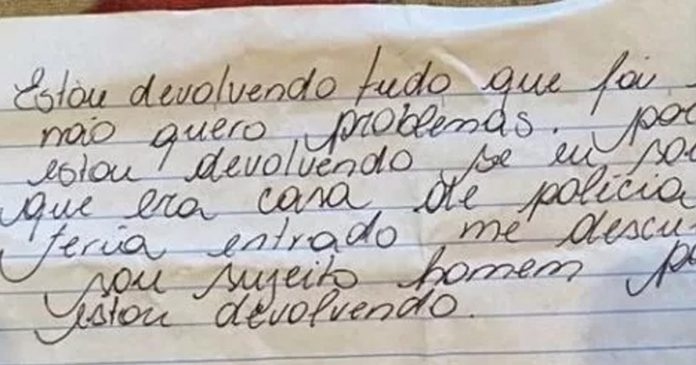 Estou devolvendo tudo que foi
não quero problemas.
estou devolvendo se eu
que era casa de policia
teria entrado me
sou sujeito homem
estou devolvendo.